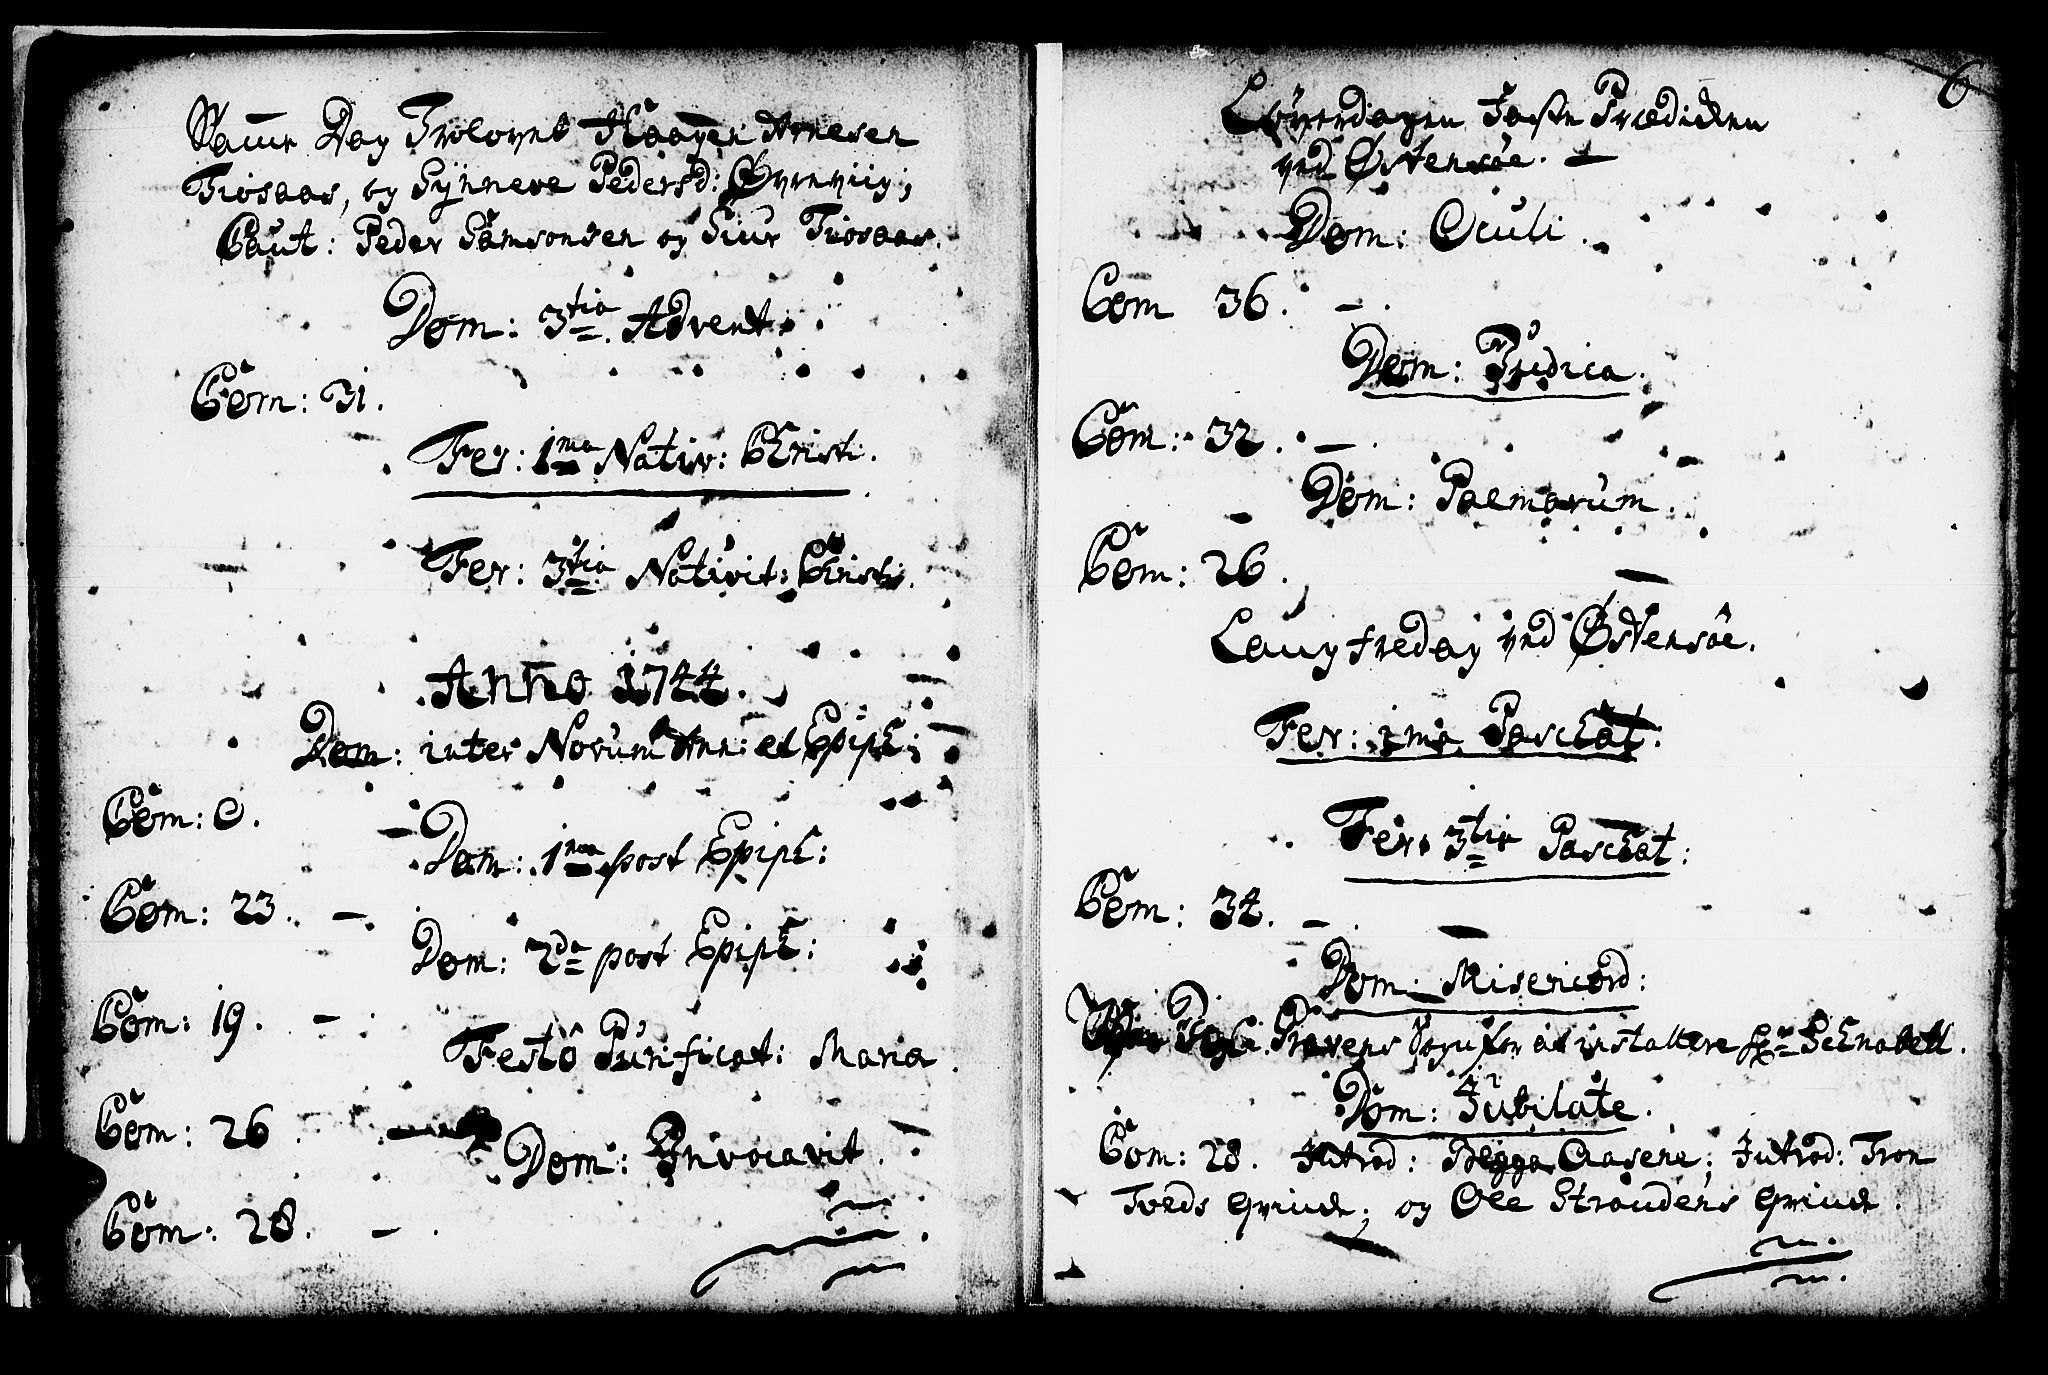 Samme Dag Trolovet Haagen Arnesen
Tiosaas, og Sÿnneve Pedersd: Øvreviig;
Caut: Peder Samsonsen og Siur Tiosaas.
Dom: 3tia Advent.
Com̄: 31.
Fer: 1ma Nativ: Christi.
Fer: 3tia Nativit: Christi.
Anno 1744.
Dom: inter Novum Ann: et Epiph:
Com̄: 0.
Dom: 1ma post Epiph:
Com̄: 23. -.
Dom: 2da post Epiph:
Com̄: 19. -.
Festo Purificat: Maria.
Com̄: 26.
Dom: Invocavit.
Com̄: 28. -.
6
Löverdagen Faste Prædicken
ved Østensöe. -
Dom: Oculi.
Com̄ 36. -.
Dom: Judica.
Com̄: 32. -.
Dom: Palmarum.
Com̄: 26.
Langfredag ved Østensöe.
Fer: 1ma Paschat:
Fer: 3tia Paschat:
Com̄: 34. -.
Dom: Misericord:
Provens for at installere Hr Schnabell.
Dom: Jubilate.
Com̄: 28. Introd: Begga Aasene; Introd: Tron
Tveds Qvinde; og Ole Strandens Qvinde.